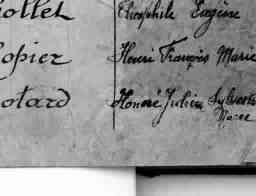 ollet Théophile Eugène
opier Henri François Marie
otard Honoré Julien Sylvestre
Marie